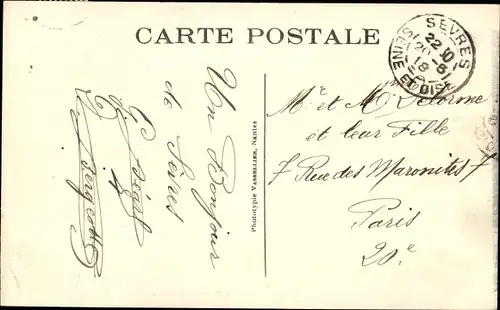 CARTE POSTALE
SEVRES
22 30
20 -5
18
SEINE ET OISE
Un Bonjour
de Sevres
Phototypie VASSELLIER, Nantes
Mr et Me Delorme
et leur Fille
7 Rue des Maronites 7
Paris
20e